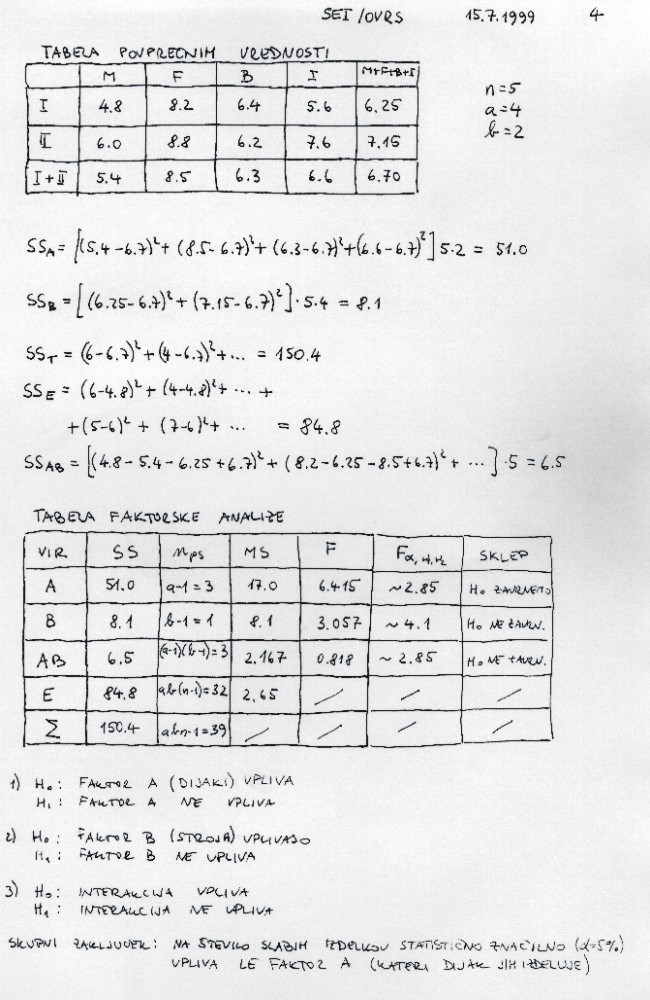 SEI/OVRS 15.7.1999 4
TABELA POVPREČNIH VREDNOSTI
M F B I M+F+B+I
I 4.8 8.2 6.4 5.6 6.25
II 6.0 8.8 6.2 7.6 7.15
I+II 5.4 8.5 6.3 6.6 6.70
n=5
a=4
b=2
SS_A = [(5.4-6.7)² + (8.5-6.7)² + (6.3-6.7)² + (6.6-6.7)²] 5·2 = 51.0
SS_B = [(6.25-6.7)² + (7.15-6.7)²]·5·4 = 8.1
SS_T = (6-6.7)² + (4-6.7)² + ... = 150.4
SS_E = (6-4.8)² + (4-4.8)² + ... +
+ (5-6)² + (7-6)² + ... = 84.8
SS_AB = [(4.8-5.4-6.25+6.7)² + (8.2-6.25-8.5+6.7)² + ...]·5 = 6.5
TABELA FAKTORSKE ANALIZE
VIR SS n_PS MS F F_α,n₁,n₂ SKLEP
A 51.0 a-1=3 17.0 6.415 ~2.85 H₀ ZAVRNEMO
B 8.1 b-1=1 8.1 3.057 ~4.1 H₀ NE ZAVRN.
AB 6.5 (a-1)(b-1)=3 2.167 0.818 ~2.85 H₀ NE ZAVRN.
E 84.8 ab(n-1)=32 2.65 / / /
Σ 150.4 abn-1=39 / / / /
1) H₀: FAKTOR A (DIJAKI) VPLIVA
H₁: FAKTOR A NE VPLIVA
2) H₀: FAKTOR B (STROJA) VPLIVAJO
H₁: FAKTOR B NE VPLIVA
3) H₀: INTERAKCIJA VPLIVA
H₁: INTERAKCIJA NE VPLIVA
SKUPNI ZAKLJUČEK: NA ŠTEVILO SLABIH IZDELKOV STATISTIČNO ZNAČILNO (α=5%)
VPLIVA LE FAKTOR A (KATERI DIJAK JIH IZDELUJE)